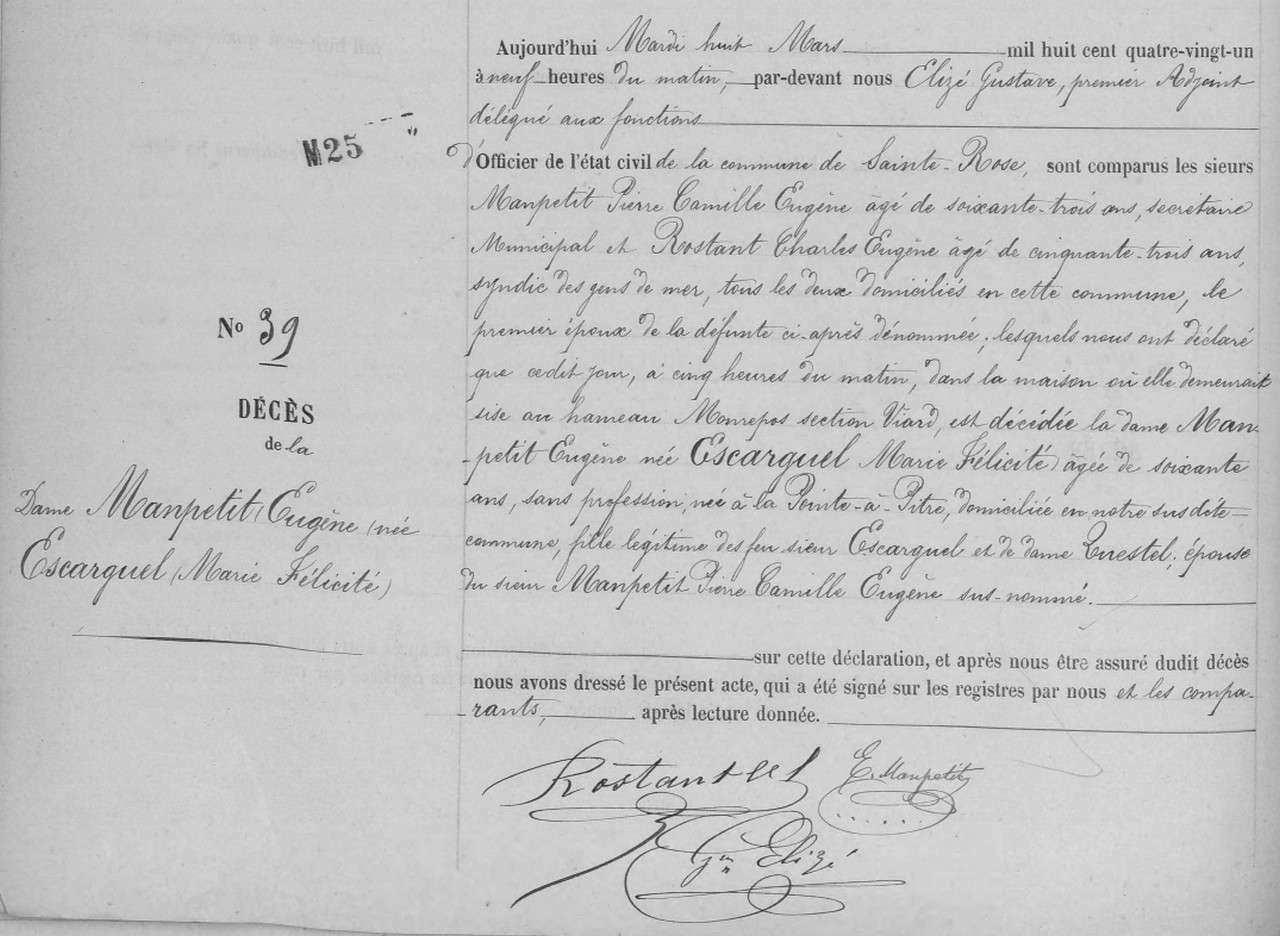 M25 "
No 39
DÉCÈS
de la
Dame Manpetit (Eugène (née
Escarguel (Marie Félicité)
Aujourd'hui Mardi huit Mars mil huit cent quatre-vingt-un
à neuf heures du matin, par-devant nous Elizé Gustave, premier Adjoint
délégué aux fonctions
d'Officier de l'état civil de la commune de Sainte-Rose, sont comparus les sieurs
Manpetit Pierre Camille Eugène âgé de soixante-trois ans, secrétaire
Municipal et Rostant Charles Eugène âgé de cinquante-trois ans,
syndic des gens de mer, tous les deux domiciliés en cette commune, le
premier époux de la défunte ci-après dénommée; lesquels nous ont déclaré
que cedit jour, à cinq heures du matin, dans la maison où elle demeurait
sise au hameau Monrepos section Viard, est décédée la dame Man-
-petit Eugène née Escarguel Marie Félicité) âgée de soixante
ans, sans profession, née à la Pointe-à-Pitre, domiciliée en notre susdite
commune, fille légitime des feu sieur Escarguel et de dame Questel; épouse
du sieur Manpetit Pierre Camille Eugène sus-nommé.
sur cette déclaration, et après nous être assuré dudit décès
nous avons dressé le présent acte, qui a été signé sur les registres par nous et les compa-
-rants, après lecture donnée.
Rostant E. Manpetit
Gve Elizé